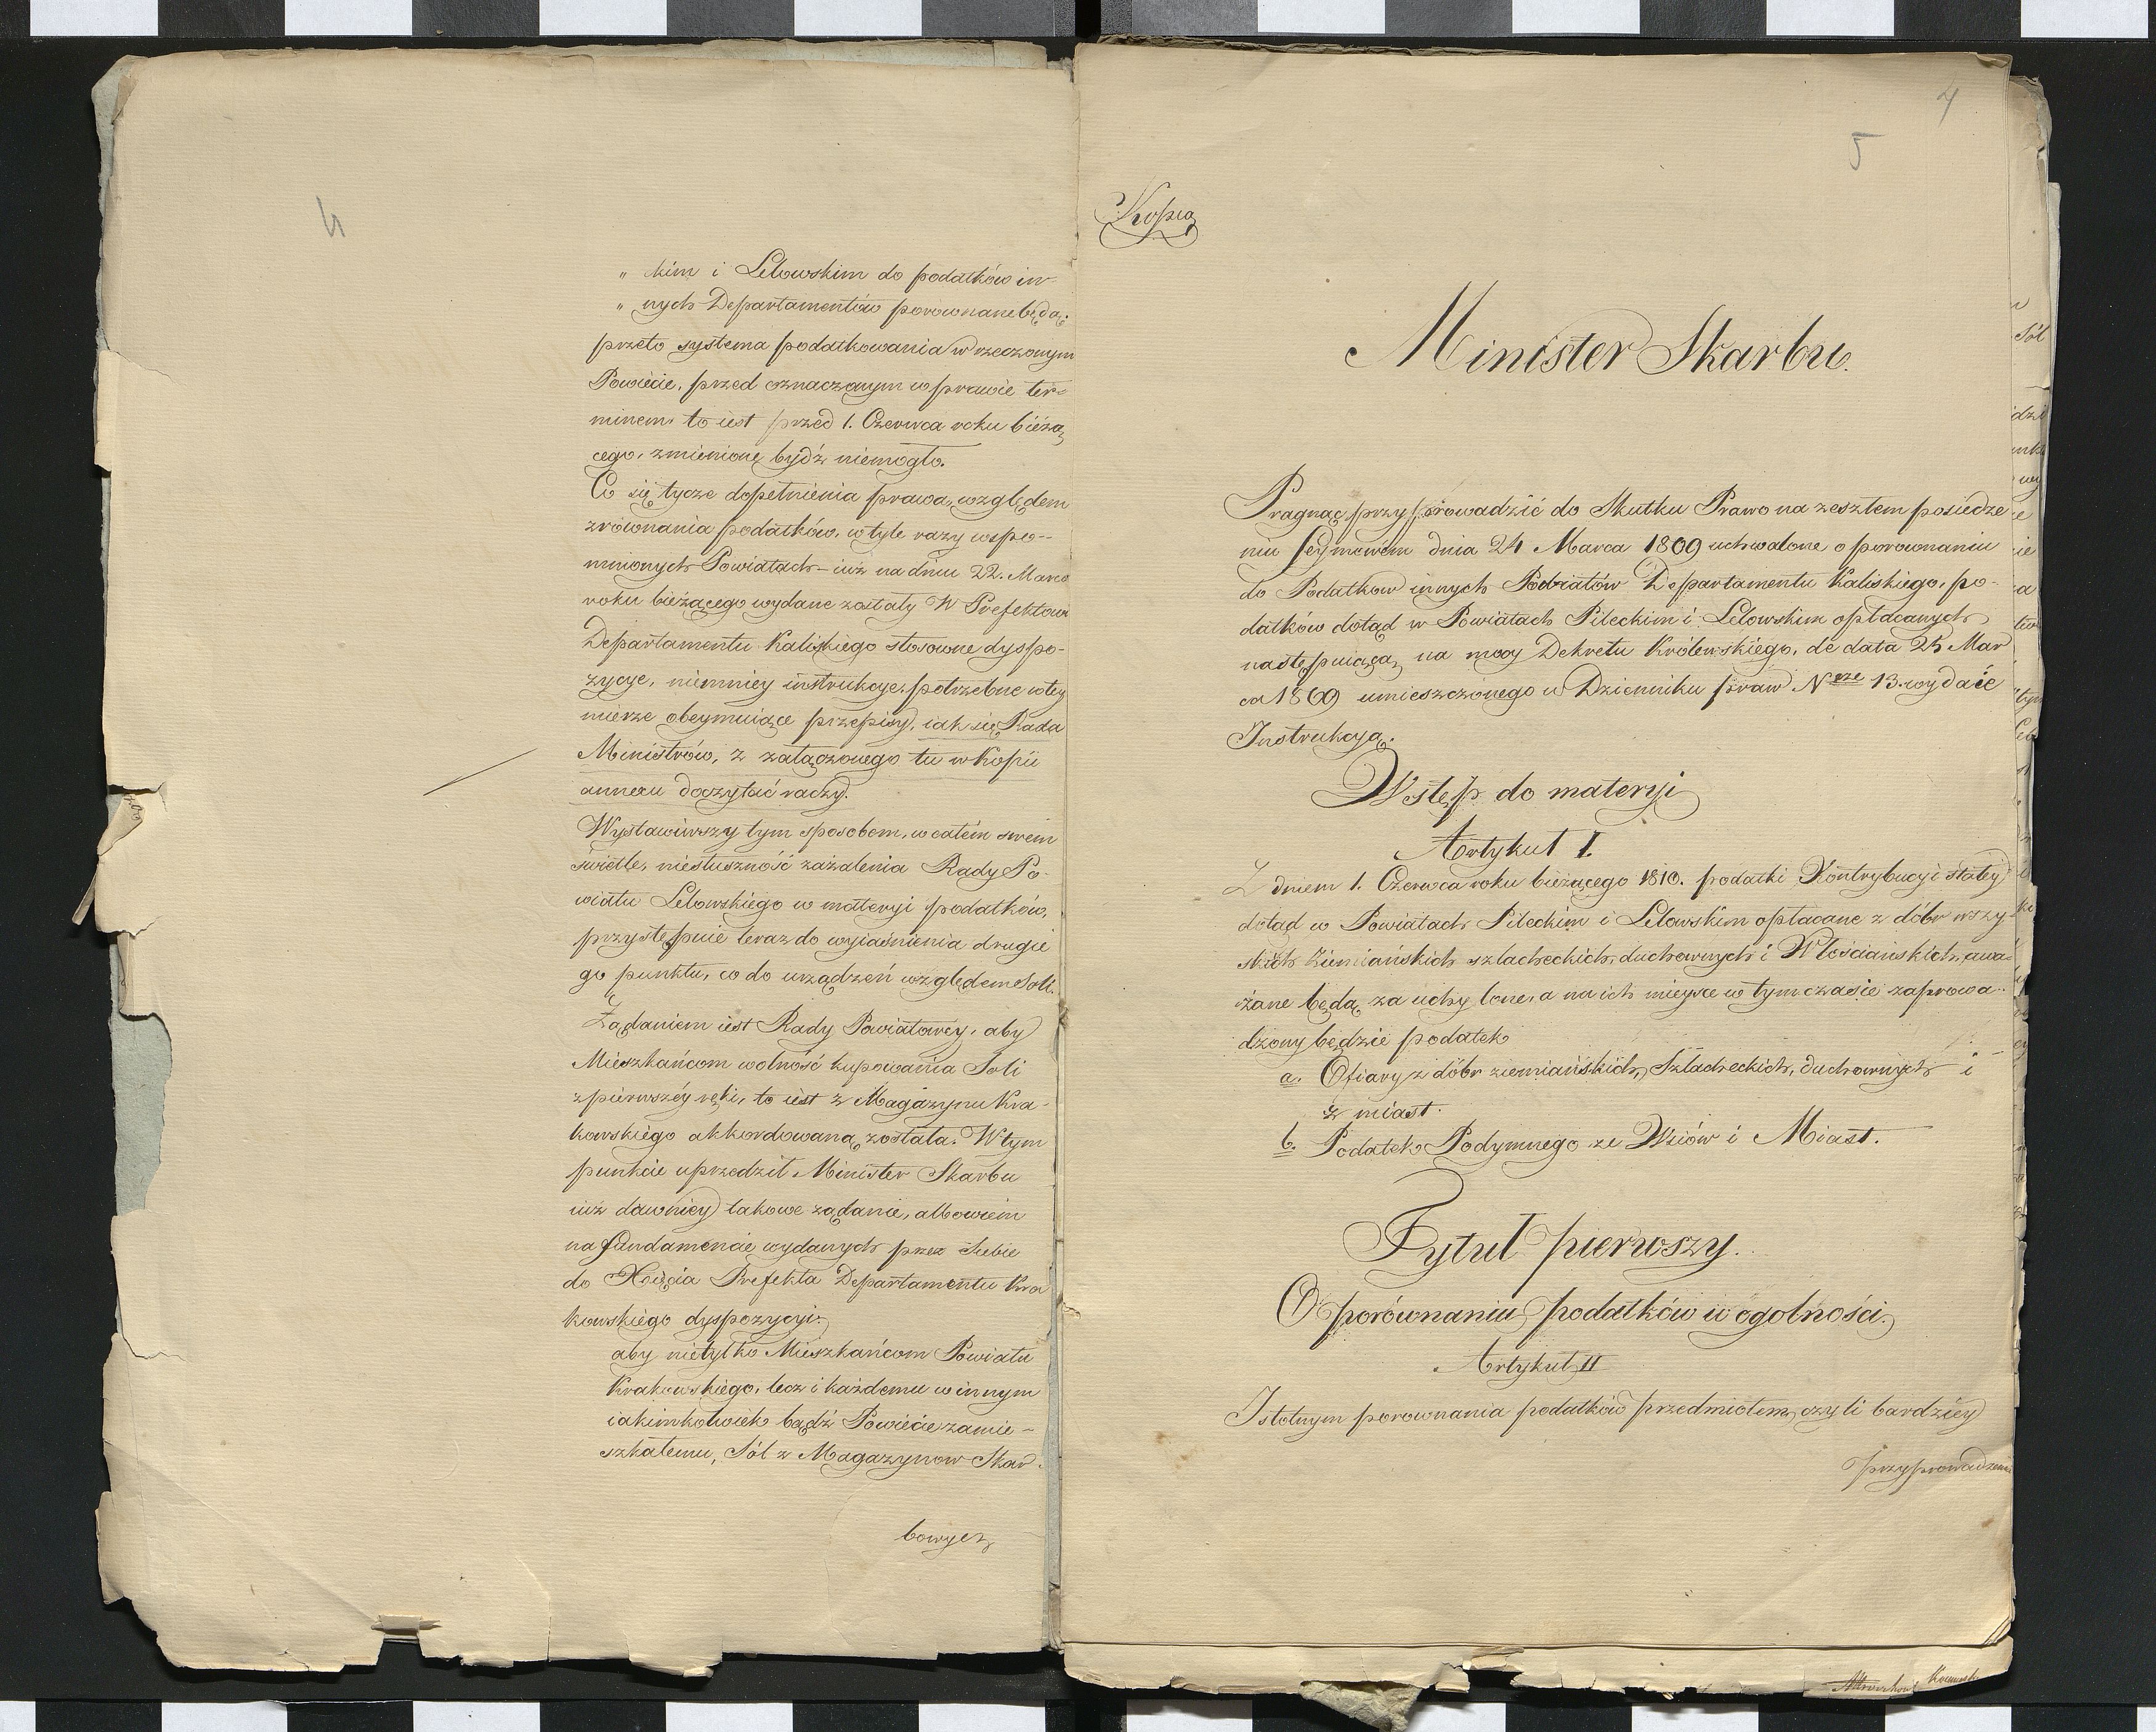 4
„ kim i Lelowskim do podatków in-
„ nych Departamentów porównane będą;
przeto systema podatkowania w rzeczonym
Powiecie, przed oznaczonym w prawie ter-
minem to iest przed 1. Czerwca roku bieżą
cego, zmienione bydź niemogło.
Co się tycze dopełnienia prawa, względem
zrównania podatków, w tyle razy wspo-
mnionych Powiatach – iuż na dniu 22. Marca
roku bieżącego wydane zostały W Prefektowi
Departamentu Kaliskiego stosowne dyspo-
zycye, niemniey instrukcye, potrzebne w tey
mierze obeymuiące przepisy, iak się Rada
Ministrów, z załączonego tu w Kopii
annexu doczytać raczy.
Wystawiwszy tym sposobem, w całém swém
świetle, niesłuszność zażalenia Rady Po-
wiatu Lelowskiego w materyi podatków,
przystępuie teraz do wyiaśnienia drugie
go punktu, co do urządzeń względem Soli.
Żądaniem iest Rady Powiatowey, aby
Mieszkańcom wolność kupowania Soli
z pierwszéy ręki, to iest z Magazynu Kra-
kowskiego akkordowaną została. W tym
punkcie uprzedził Minister Skarbu
iuż dawniey takowe żądanie, albowiem
na fundamencie wydanych przez Siebie
do Xięcia Prefekta Departamentu Kra
kowskiego dyspozycyi.
aby nietylko Mieszkańcom Powiatu
Krakowskiego, lecz i każdemu w innym
iakimkolwiek bądź Powiecie zamie-
szkałemu, Sól z Magazynow Skar-
bowych
4
5
Kopia
Minister Skarbu.
Pragnąc przyprowadzić do Skutku Prawo na zeszłem posiedze
niu Seymowém dnia 24 Marca 1809 uchwalone o porownaniu
do Podatkow innych Powiatów Departamentu Kaliskiego, po-
datków dotąd w Powiatach Pileckim i Lelowskim opłacanych
następuiącą na mocy Dekretu Królewskiego, de data 25 Mar
ca 1809 umieszczonego w Dzienniku praw Nrze 13. wydaie
Instrukcyą.
Wstęp do materyi
Artykuł I.
Z dniem 1. Czerwca roku bieżącego 1810. podatki Kontrybucyi stałey
dotąd w Powiatach Pileckim i Lelowskim opłacane z dóbr wszy-
stkich Ziemiańskich szlacheckich, duchownych i Włościańskich, uwa-
żane będą za uchylone, a na ich mieysce w tymczasie zaprowa-
dzony będzie podatek
a. Ofiary z dóbr ziemiańskich, Szlacheckich, duchownych i
z miast.
b. Podatek Podymnego ze Wsiów i Miast.
Tytuł pierwszy.
O porównaniu podatków w ogólności.
Artykuł II
Istotnym porownania podatków przedmiotem, czyli bardziéy
przyprowadzenia